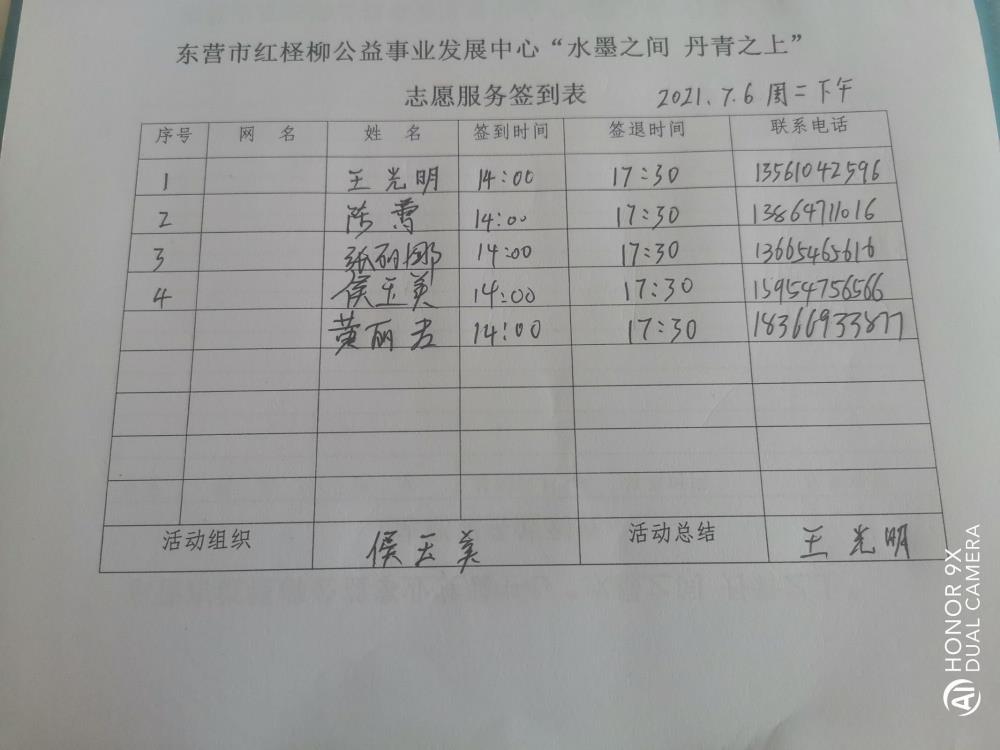 东营市红柽柳公益事业发展中心“水墨之间 丹青之上”
志愿服务签到表 2021.7.6 周二下午
序号 网 名 姓 名 签到时间 签退时间 联系电话
1 王光明 14:00 17:30 13561042596
2 陈 14:00 17:30 13864711016
3 张丽娜 14:00 17:30 13665465616
4 侯玉美 14:00 17:30 15954756566
黄丽君 14:00 17:30 18366933877
活动组织 侯玉美 活动总结 王光明
HONOR 9X
DUAL CAMERA